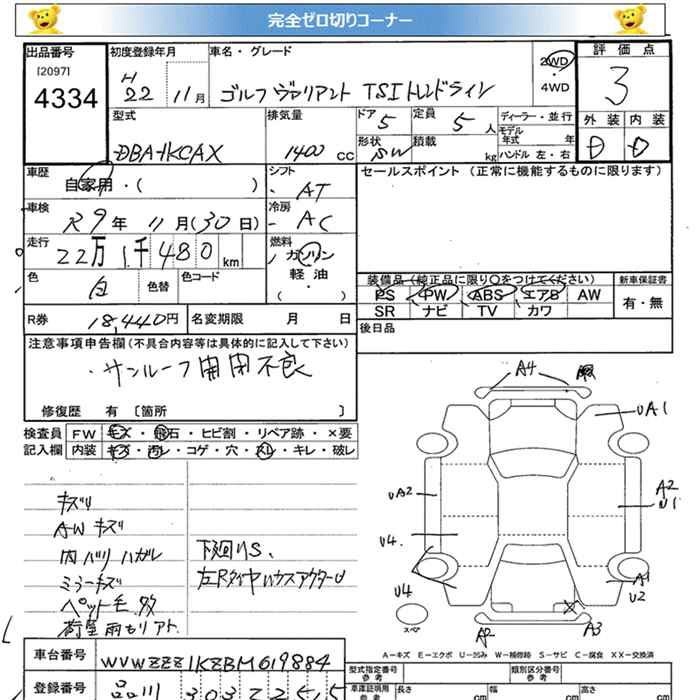 完全ゼロ切りコーナー
出品番号
[2097]
4334
初度登録年月
H
22 11月
車名・グレード
ゴルフ ヴァリアント TSI トレンドライン
2WD
・
4WD
評価点
3
型式
DBA-1KCAX
排気量
1400 CC
ドア
5
形状
SW
定員
5 人
積載
kg
ディーラー・並行
モデル
年式 年
ハンドル 左・右
外装 内装
D D
車歴
自家用・( )
シフト
AT
セールスポイント (正常に機能するものに限ります)
車検
R9年 11月(30日)
冷房
AC
走行
22万1千480 km
燃料
ガソリン
軽・油
( ・ )
色
白
色替
色コード
装備品(純正品に限り○をつけてください)
PS PW ABS エアB AW
SR ナビ TV カワ
新車保証書
有・無
R券 18,440円
名変期限 月 日
後日品
注意事項申告欄(不具合内容等は具体的に記入して下さい)
・サンルーフ開閉不良
修復歴 有 〔箇所 〕
検査員
記入欄
FW キズ・飛石・ヒビ割・リペア跡・×要
内装 キズ・汚レ・コゲ・穴・スレ・キレ・破レ
キズU
AW キズ
内バリ ハガレ
ミラーキズ
ペット毛多
下廻りS、
左RタイヤハウスアウターU
A4
UA1
UA2
A2
U1
U4
U4
A1
U2
スペア
A2
A3
A-キズ E-エクボ U-凹み W-補修跡 S-サビ C-腐食 XX-交換済
車台番号
WVWZZZ1KZBM619884
登録番号
品川 303
型式指定番号
参考
類別区分番号
参考
車庫証明用
参考
長さ
cm
幅
高さ